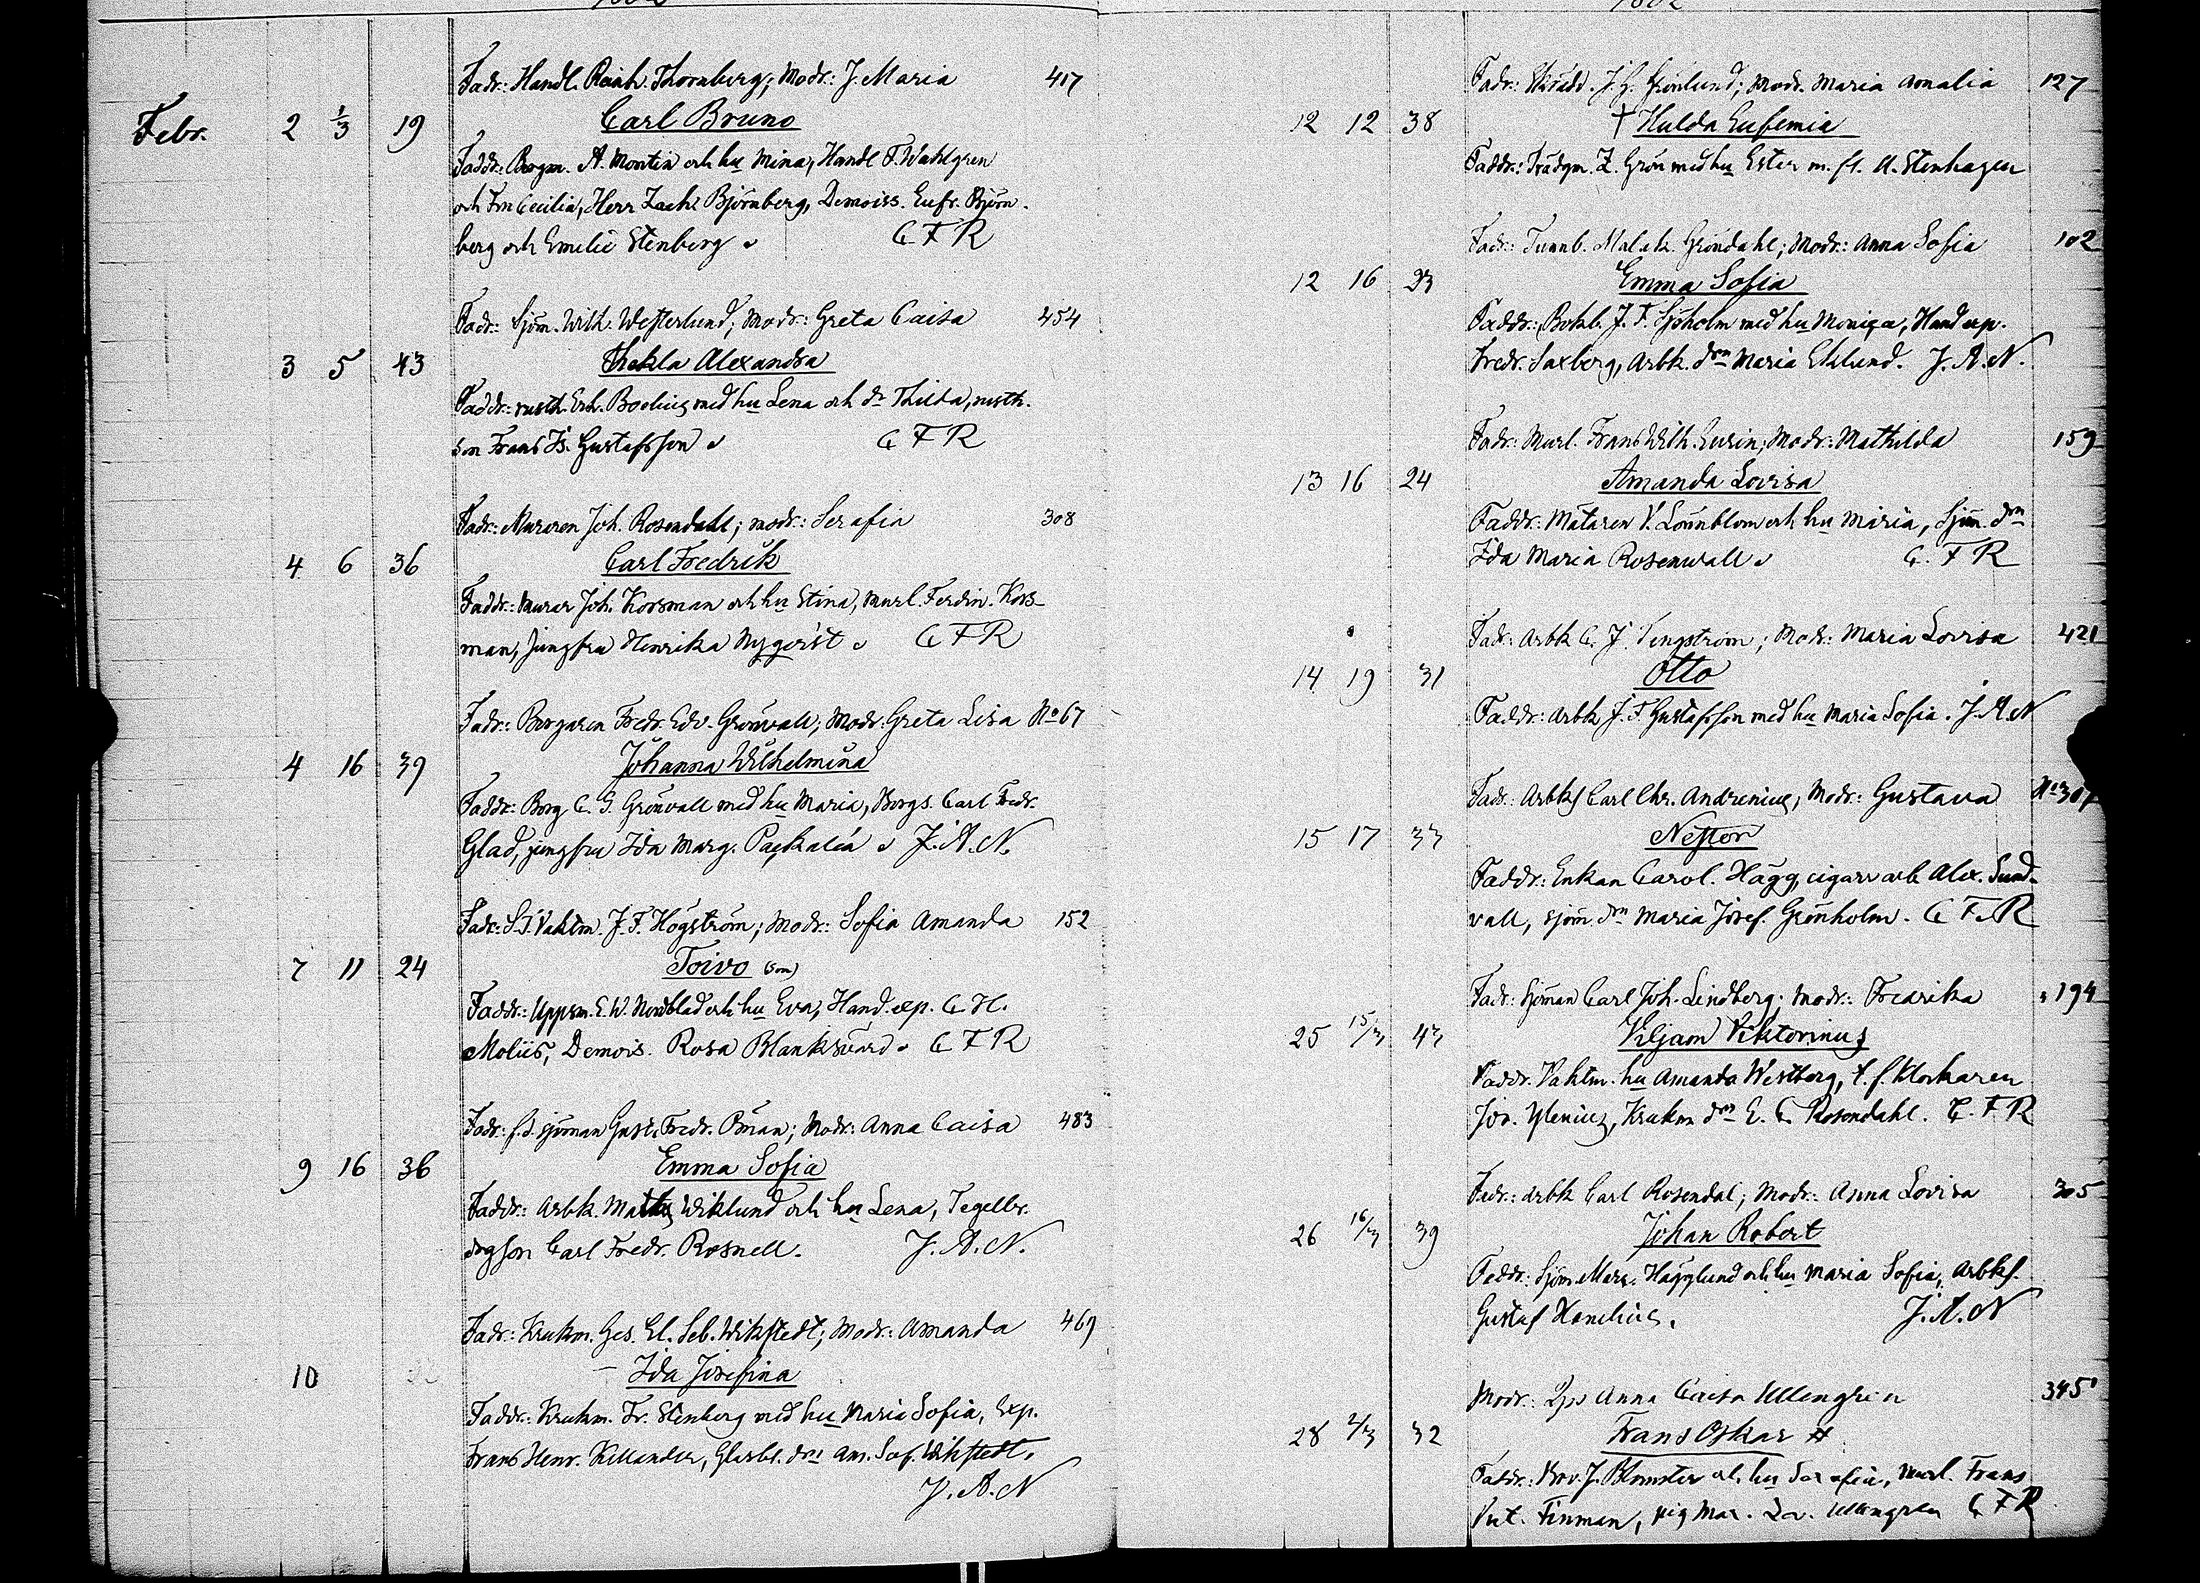 Fadr: Handl. Reinh. Thornberg; Modr: J. Maria 417
Febr. 2 1/3 19 Carl Bruno
Faddr: Borgm. A. Montin och hu Mina, Handl F. Wahlgren
och Fru Cecilia, Herr Zach. Björnberg, Demoiss. Eufr. Björn-
berg och Emelie Stenberg C F R
Fadr: Sjöm. Wilh. Westerlund; Modr: Greta Caisa 454
3 5 43 Thekla Alexandra
Faddr: rusth. Erh. Boelius med hu Lena och dr Thilda, rusth.
son Frans Fs. Gustafsson C F R
Fadr: Muraren Joh. Rosendahl; modr: Serafia 308
4 6 36 Carl Fredrik
Faddr: Murar Joh. Korsman och hu Stina, Murl. Ferdin. Kors-
man, Jungfru Henrika Nyqvist C F R
Fadr: Borgaren Fredr. Edv. Grönvall; Modr: Greta Lisa No 67
4 16 39 Johanna Wilhelmina
Faddr: Borg C. G. Grönvall med hu Maria, Borgs. Carl Fredr.
Glad, jungfru Ida Marg. Packalén J. A. N.
Fadr: Vaktm. J. F. Högström; Modr: Sofia Amanda 152
7 11 24 Toivo (son)
Faddr: Uppsm. E. W. Nordblad och hu Eva, Hand. exp. C. H.
Moliis, Demois. Rosa Blanksvärd C F R
Fadr: f.d. sjöman Gust. Fredr. Öman; Modr: Anna Caisa 483
9 16 36 Emma Sofia
Faddr: Arbk. Matts Wiklund och hu Lena, Tegelbr.
drgson Carl Fredr. Rosnell. J. A. N.
Fadr: Krukm. Ges. El. Seb. Wikstedt; Modr: Amanda 469
10 Ida Josefina
Faddr: Krukm. Fr. Stenberg med hu Maria Sofia, Exp.
Frans Henr. Killander, Glasbl. drn Am. Sof. Wikstedt.
J. A. N
Fadr: Skrädd. J. H. Grönlund; Modr. Maria Amalia 127
12 12 38 † Hulda Eufemia
Faddr: Trädgm. Z. Grön med hu Ester m. fl. A. Stenhagen
Fadr: Tunnb. Malak. Gröndahl; Modr: Anna Sofia 102
12 16 33 Emma Sofia
Faddr: Bokb. J. F. Sjöholm med hu Monica, Hand exp.
Fredr. Saxberg, Arbk. drn Maria Eklund. J. A. N.
Fadr: Murl. Frans Wilh. Eurin; Modr: Mathilda 159
13 16 24 Amanda Lovisa
Faddr: Mätaren V. Lönnblom och hu Maria, Sjöm. drn
Ida Maria Rosenwall C. F R
Fadr: Arbk C. J. Tengström; Modr: Maria Lovisa 421
14 19 31 Otto
Faddr: Arbk J. F. Gustafsson med hu Maria Sofia. J. A. N
Fadr: Arbks Carl Chr. Andrenius; Modr: Gustava No 307
15 17 33 Nestor
Faddr: Enkan Carol. Hägg, cigarr arb Alex. Sund-
vall, sjöm. drn Maria Josef. Grönholm. C F. R
Fadr: Sjöman Carl Joh. Lindberg; Modr: Fredrika 194
25 15/3 43 Viljam Viktorinus
Faddr. Vaktm. hu Amanda Westberg, t. f. Klockaren
Jos. Ylenius, Krukm drn E. C. Rosendahl. C. F R
Fadr: Arbk Carl Rosendal; Modr: Anna Lovisa 305
26 16/3 39 Johan Robert
Faddr: Sjöm. Marc. Hägglund och hu Maria Sofia, Arbks.
Gustaf Honelius. J. A. N
Modr: Anna Caisa Ullengren 345
28 2/3 32 Frans Oskar #
Faddr: J. Blomster och hu Serafia, Murl. Frans
Vict. Finman, pig Mar. Lov. Ullengren C F R